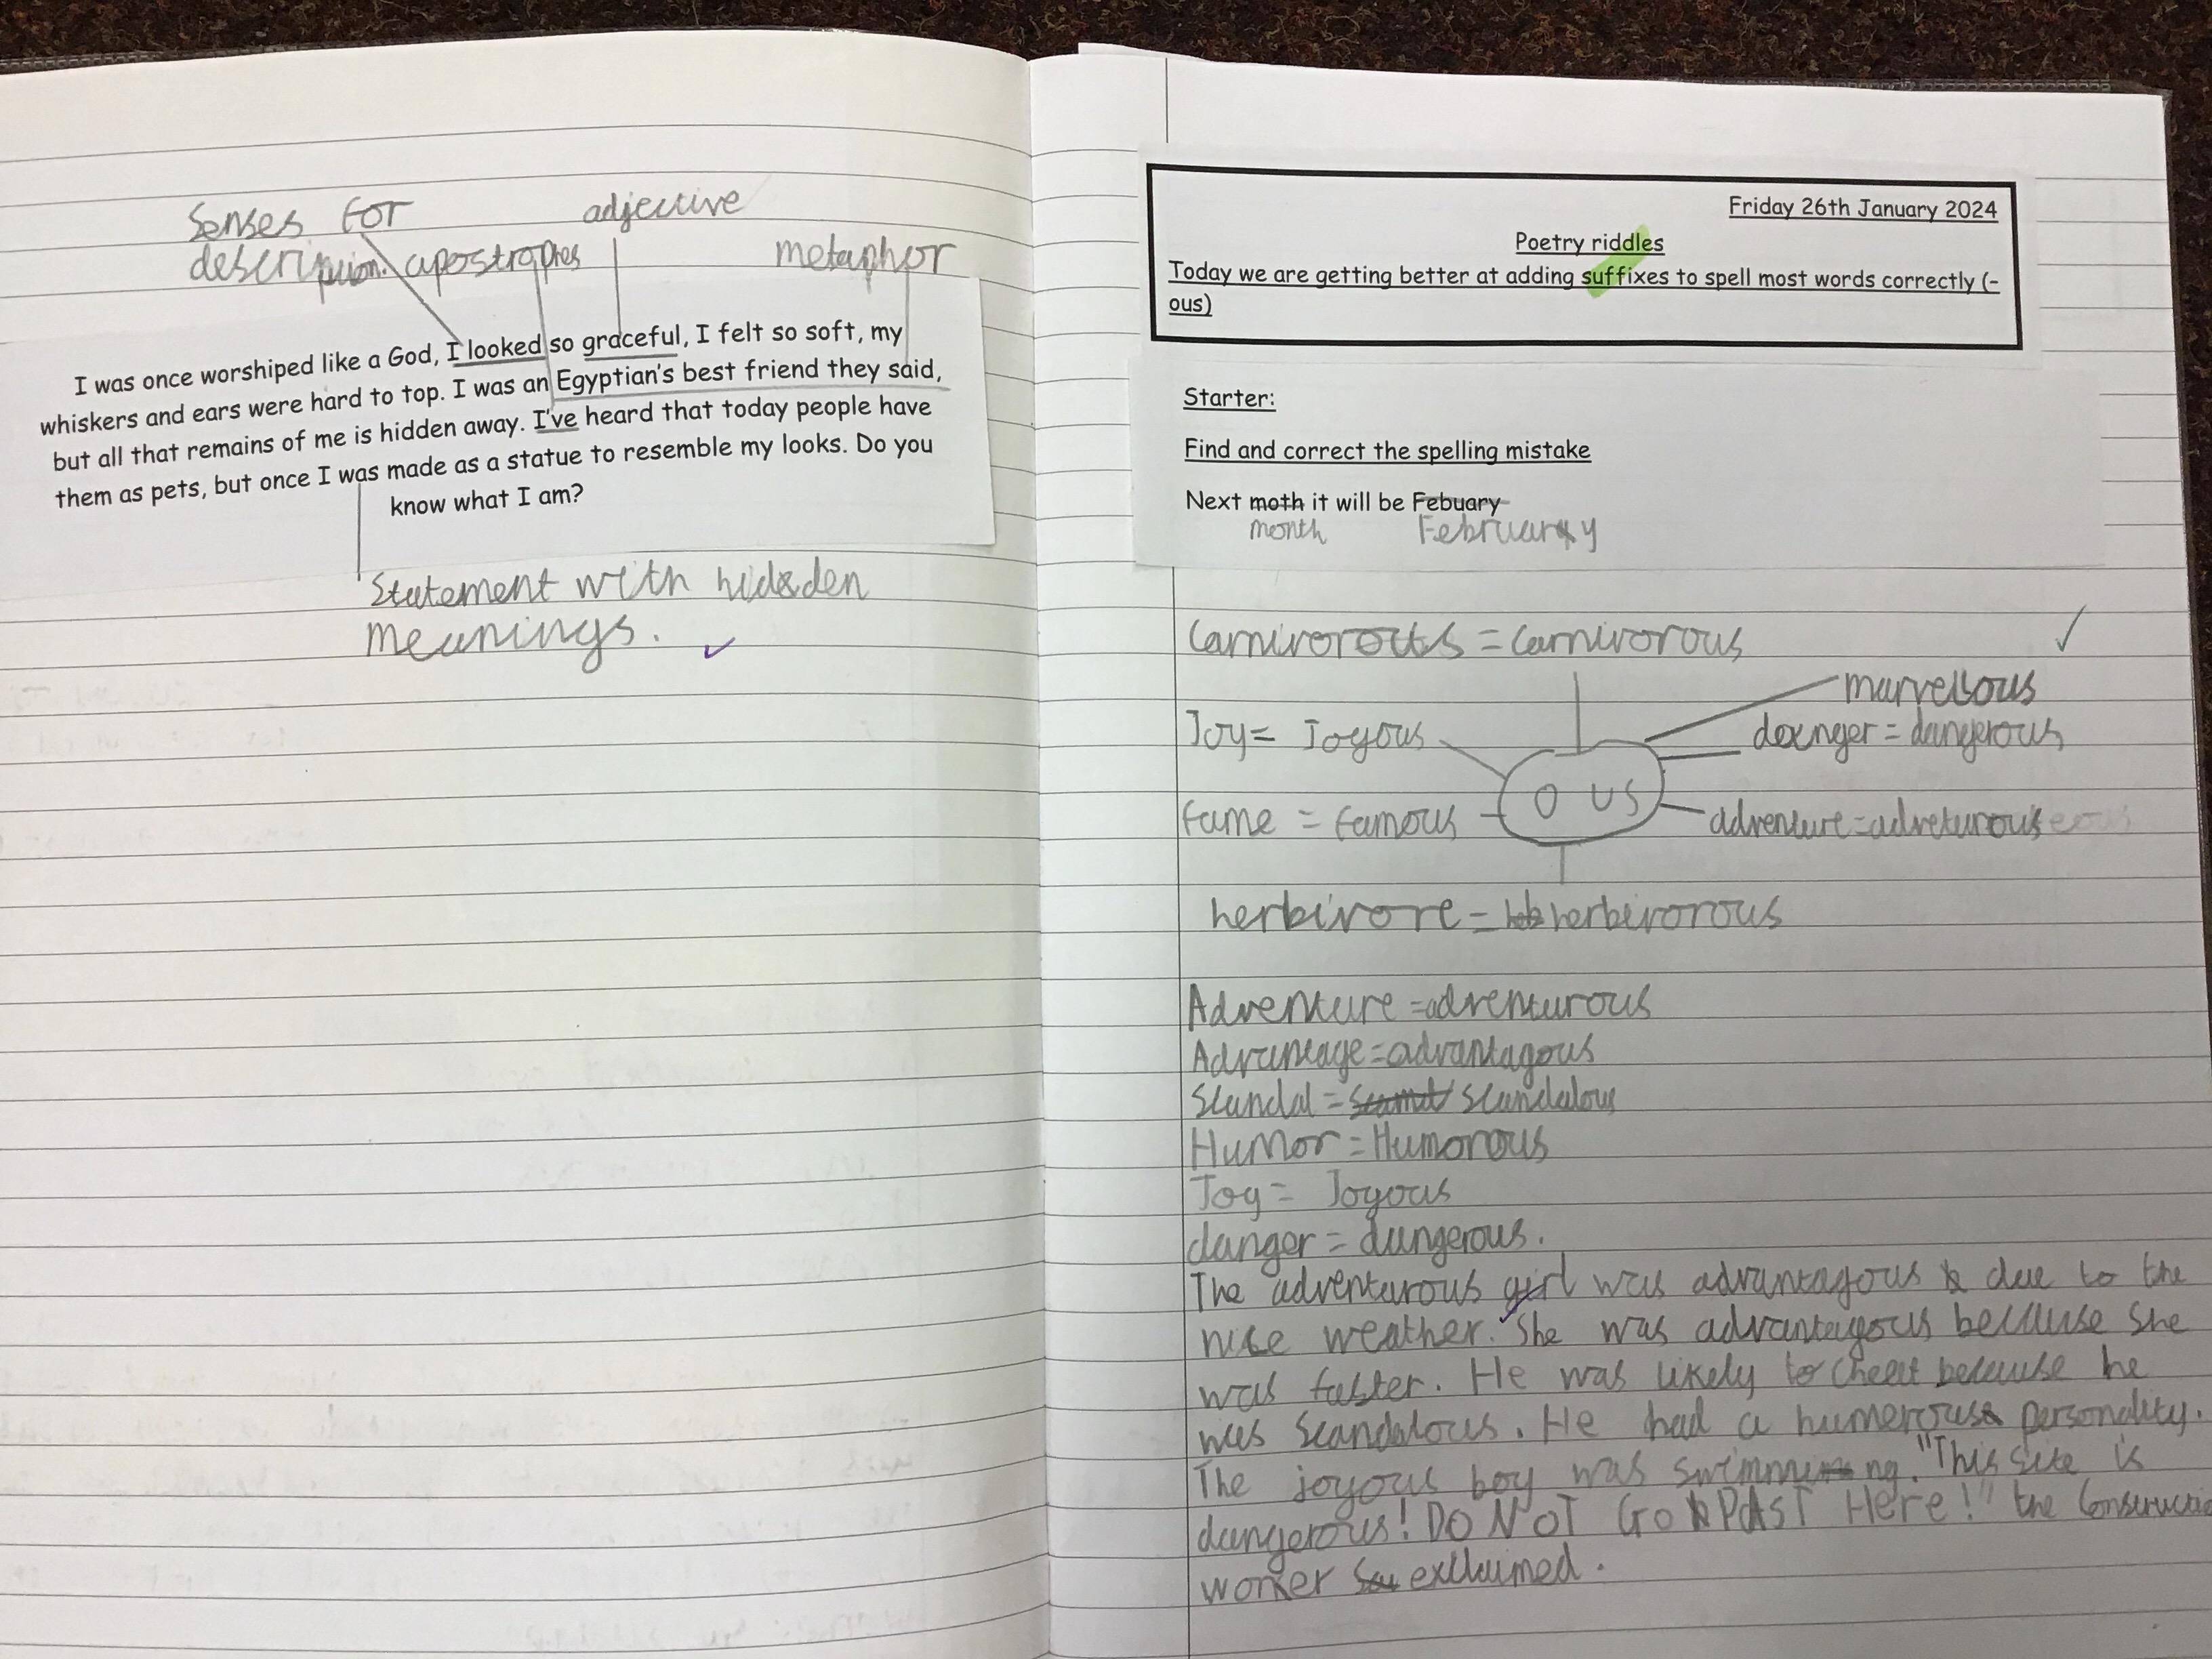 Senses for
adjective
description. apostrophes
metaphor
I was once worshiped like a God, I looked so graceful, I felt so soft, my
whiskers and ears were hard to top. I was an Egyptian's best friend they said,
but all that remains of me is hidden away. I've heard that today people have
them as pets, but once I was made as a statue to resemble my looks. Do you
know what I am?
Statement with hidden
meanings.
Friday 26th January 2024
Poetry riddles
Today we are getting better at adding suffixes to spell most words correctly (-
ous)
Starter:
Find and correct the spelling mistake
Next moth it will be Febuary
month February
= Carnivorous
marvellous
Joy = Joyous
danger = dangerous
fame = famous
O US
adventure =
herbivore = herbivorous
Adventure = adventurous
Advantage = advantagous
Scandal = scandalous
Humor = Humorous
Joy = Joyous
danger = dangerous.
The adventurous girl was advantagous due to the
nice weather. She was advantagous because she
was faster. He was likely to cheat because he
was scandalous. He had a humerous personality.
The joyous boy was swimming. "This site is
dangerous! DO NOT GO PAST Here!" the
worker exclaimed.